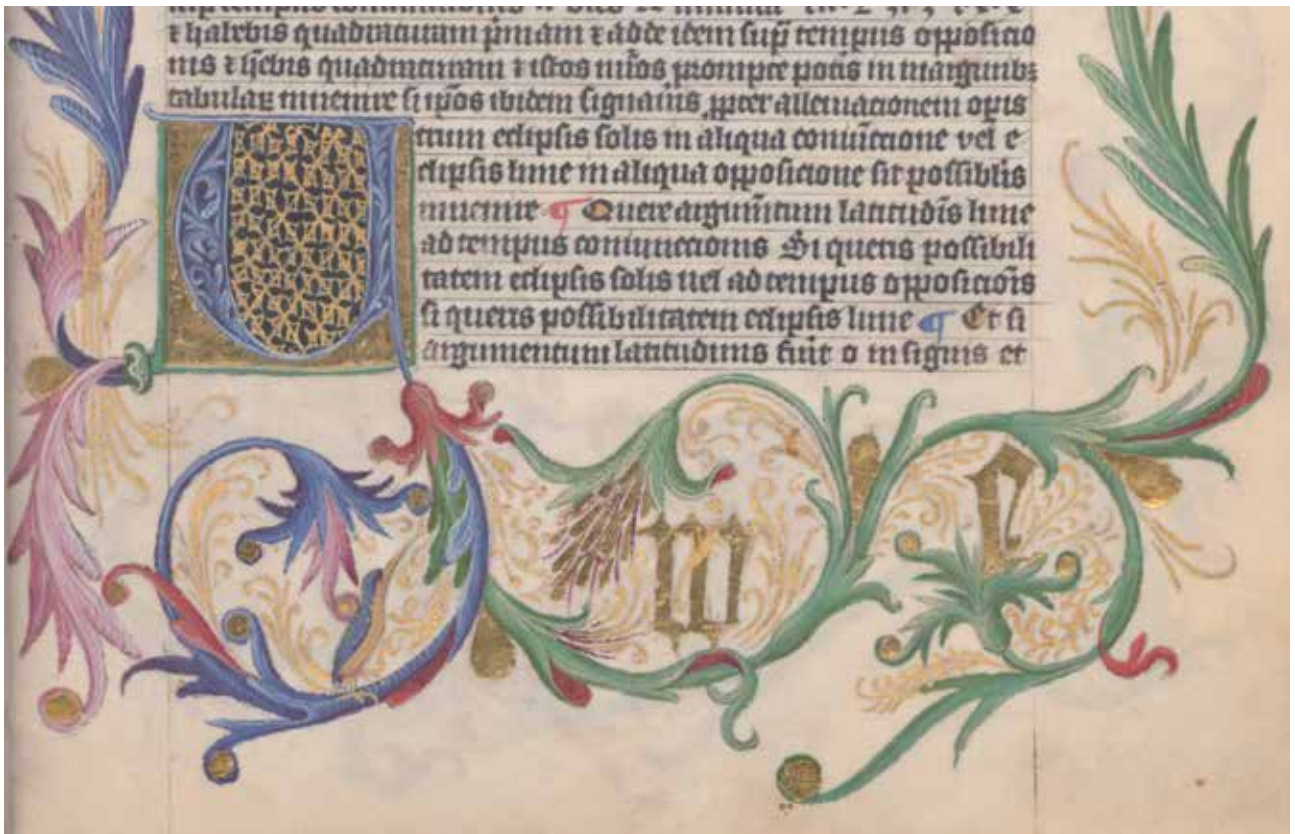 ⁊ habebis quadraturam p̄mam ⁊ adde idem sup̄ tempus opposicio
nis ⁊ hēbis quadraturam ⁊ istos nūos prompte potis in marginibꝫ
tabulaꝝ inuenire si ip̄os ibidem signauis ꝓpter alleuiacionem opis
Utrum eclipsis solis in aliqua coniūctione vel e
clipsis lune in aliqua opposicione sit possiblis
inuenire ¶ Quere argumētum latitudīs lune
ad tempus coniunctionis Si queris possibili
tatem eclipsis solis uel ad tempus opposicōis
si queris possibilitatem eclipsis lune ¶ Et si
argumentum latitudinis fuīt 0 in signis et